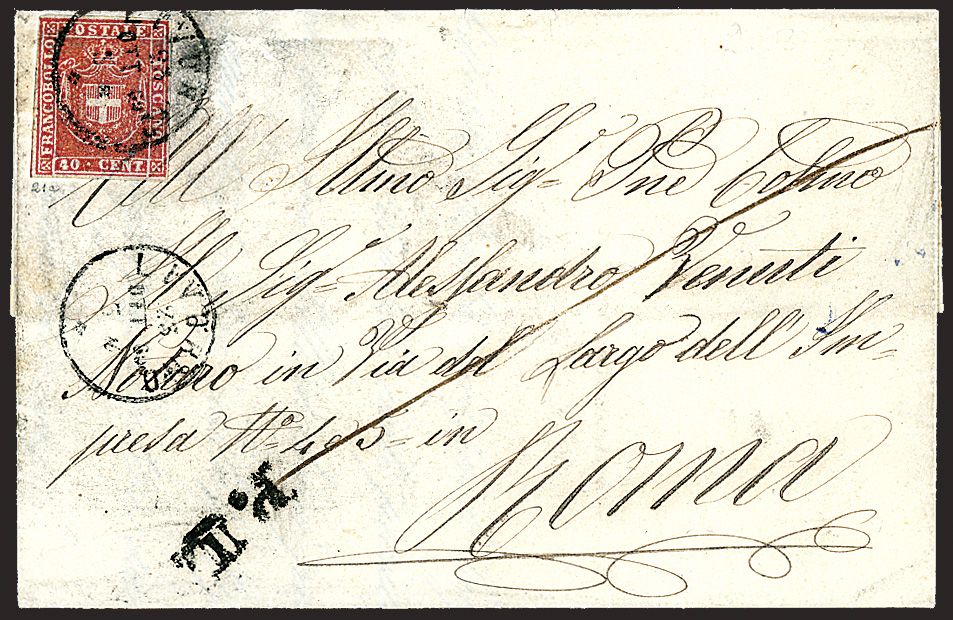 FRANCOBOLLO
POSTALE
TOSCANO
40 · CENT.
LIVORNO
OTT
21a
All' Illmo Sig= Pne Colmo
Il Sig= Alessandro Venuti
Notaro in Via del Largo dell' Im-
presa No 495= in
Roma
LIVORNO
OTT
P.D.